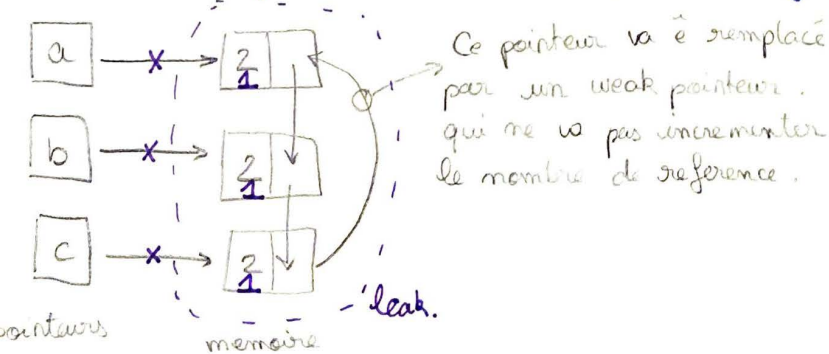 a
2
1
b
2
1
c
2
1
Ce pointeur va ê remplacé
par un weak pointeur.
qui ne va pas incrementer
le nombre de reference.
leak.
pointeurs
memoire